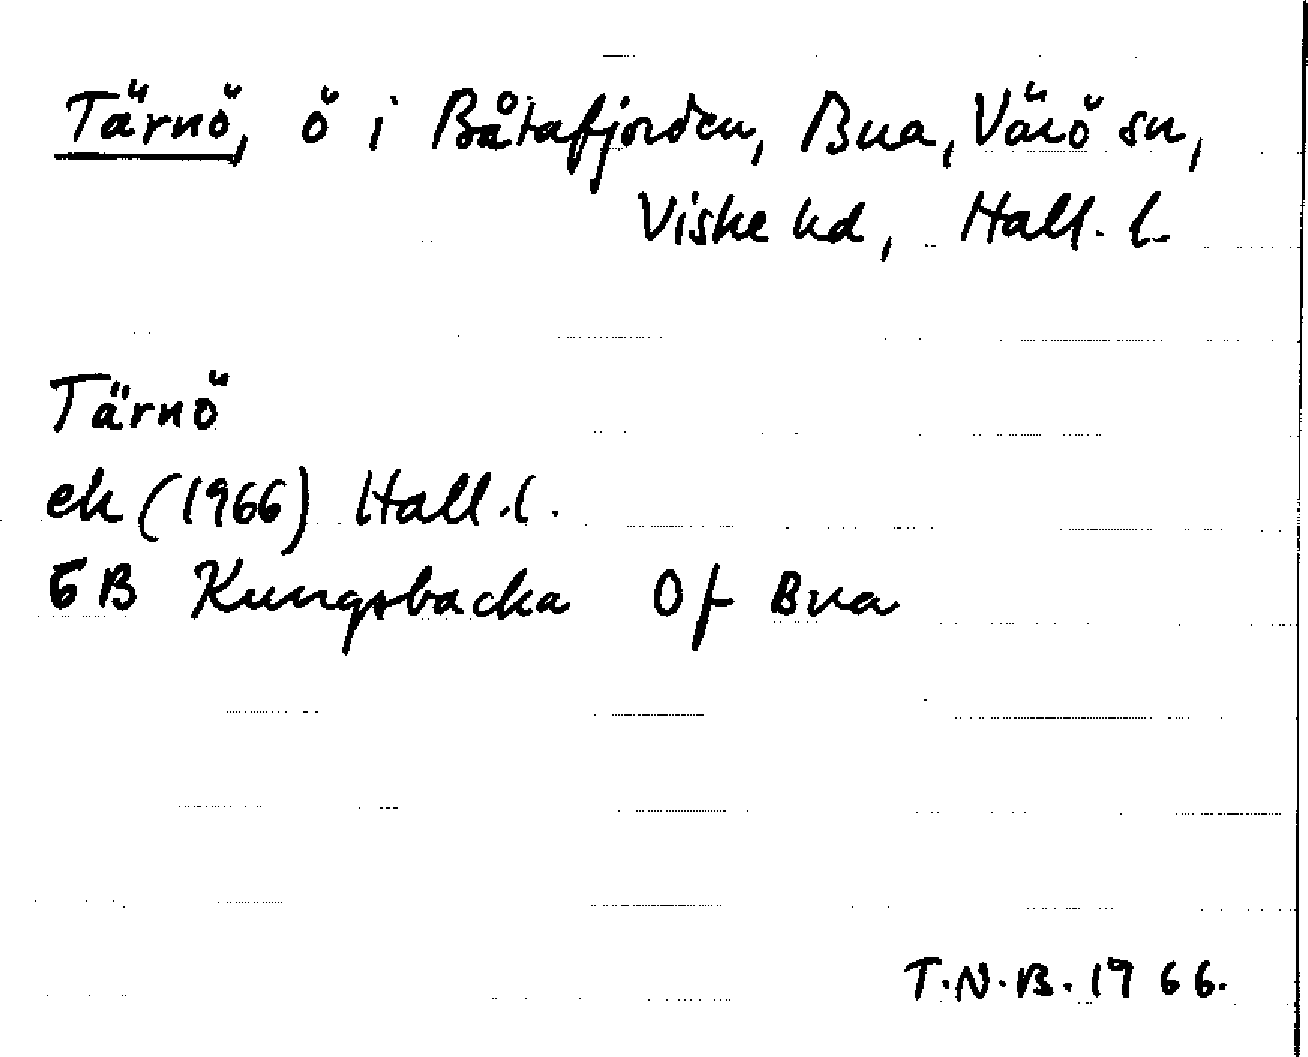 Tärnö, ö i Båtafjorden, Bua, Värö sn,
Viske hd, Hall. l.
Tärnö
ek (1966) Hall. l.
5B Kungsbacka 0f Bua
T.N.B. 1966.